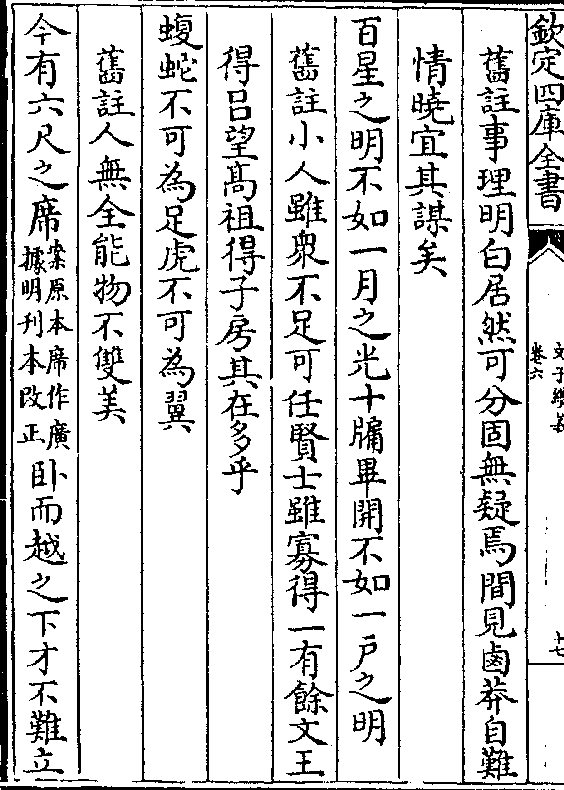 欽定四庫全書
文子纘義
卷六
十七
舊註事理明白居然可分固無疑焉間見鹵莽自難
情曉宜其謀矣
百星之明不如一月之光十牖畢開不如一戸之明
舊註小人雖衆不足可任賢士雖寡得一有餘文王
得吕望髙祖得子房其在多乎
蝮蛇不可為足虎不可為翼
舊註人無全能物不雙美
今有六尺之席案原本席作廣據明刊本改正卧而越之下才不難立